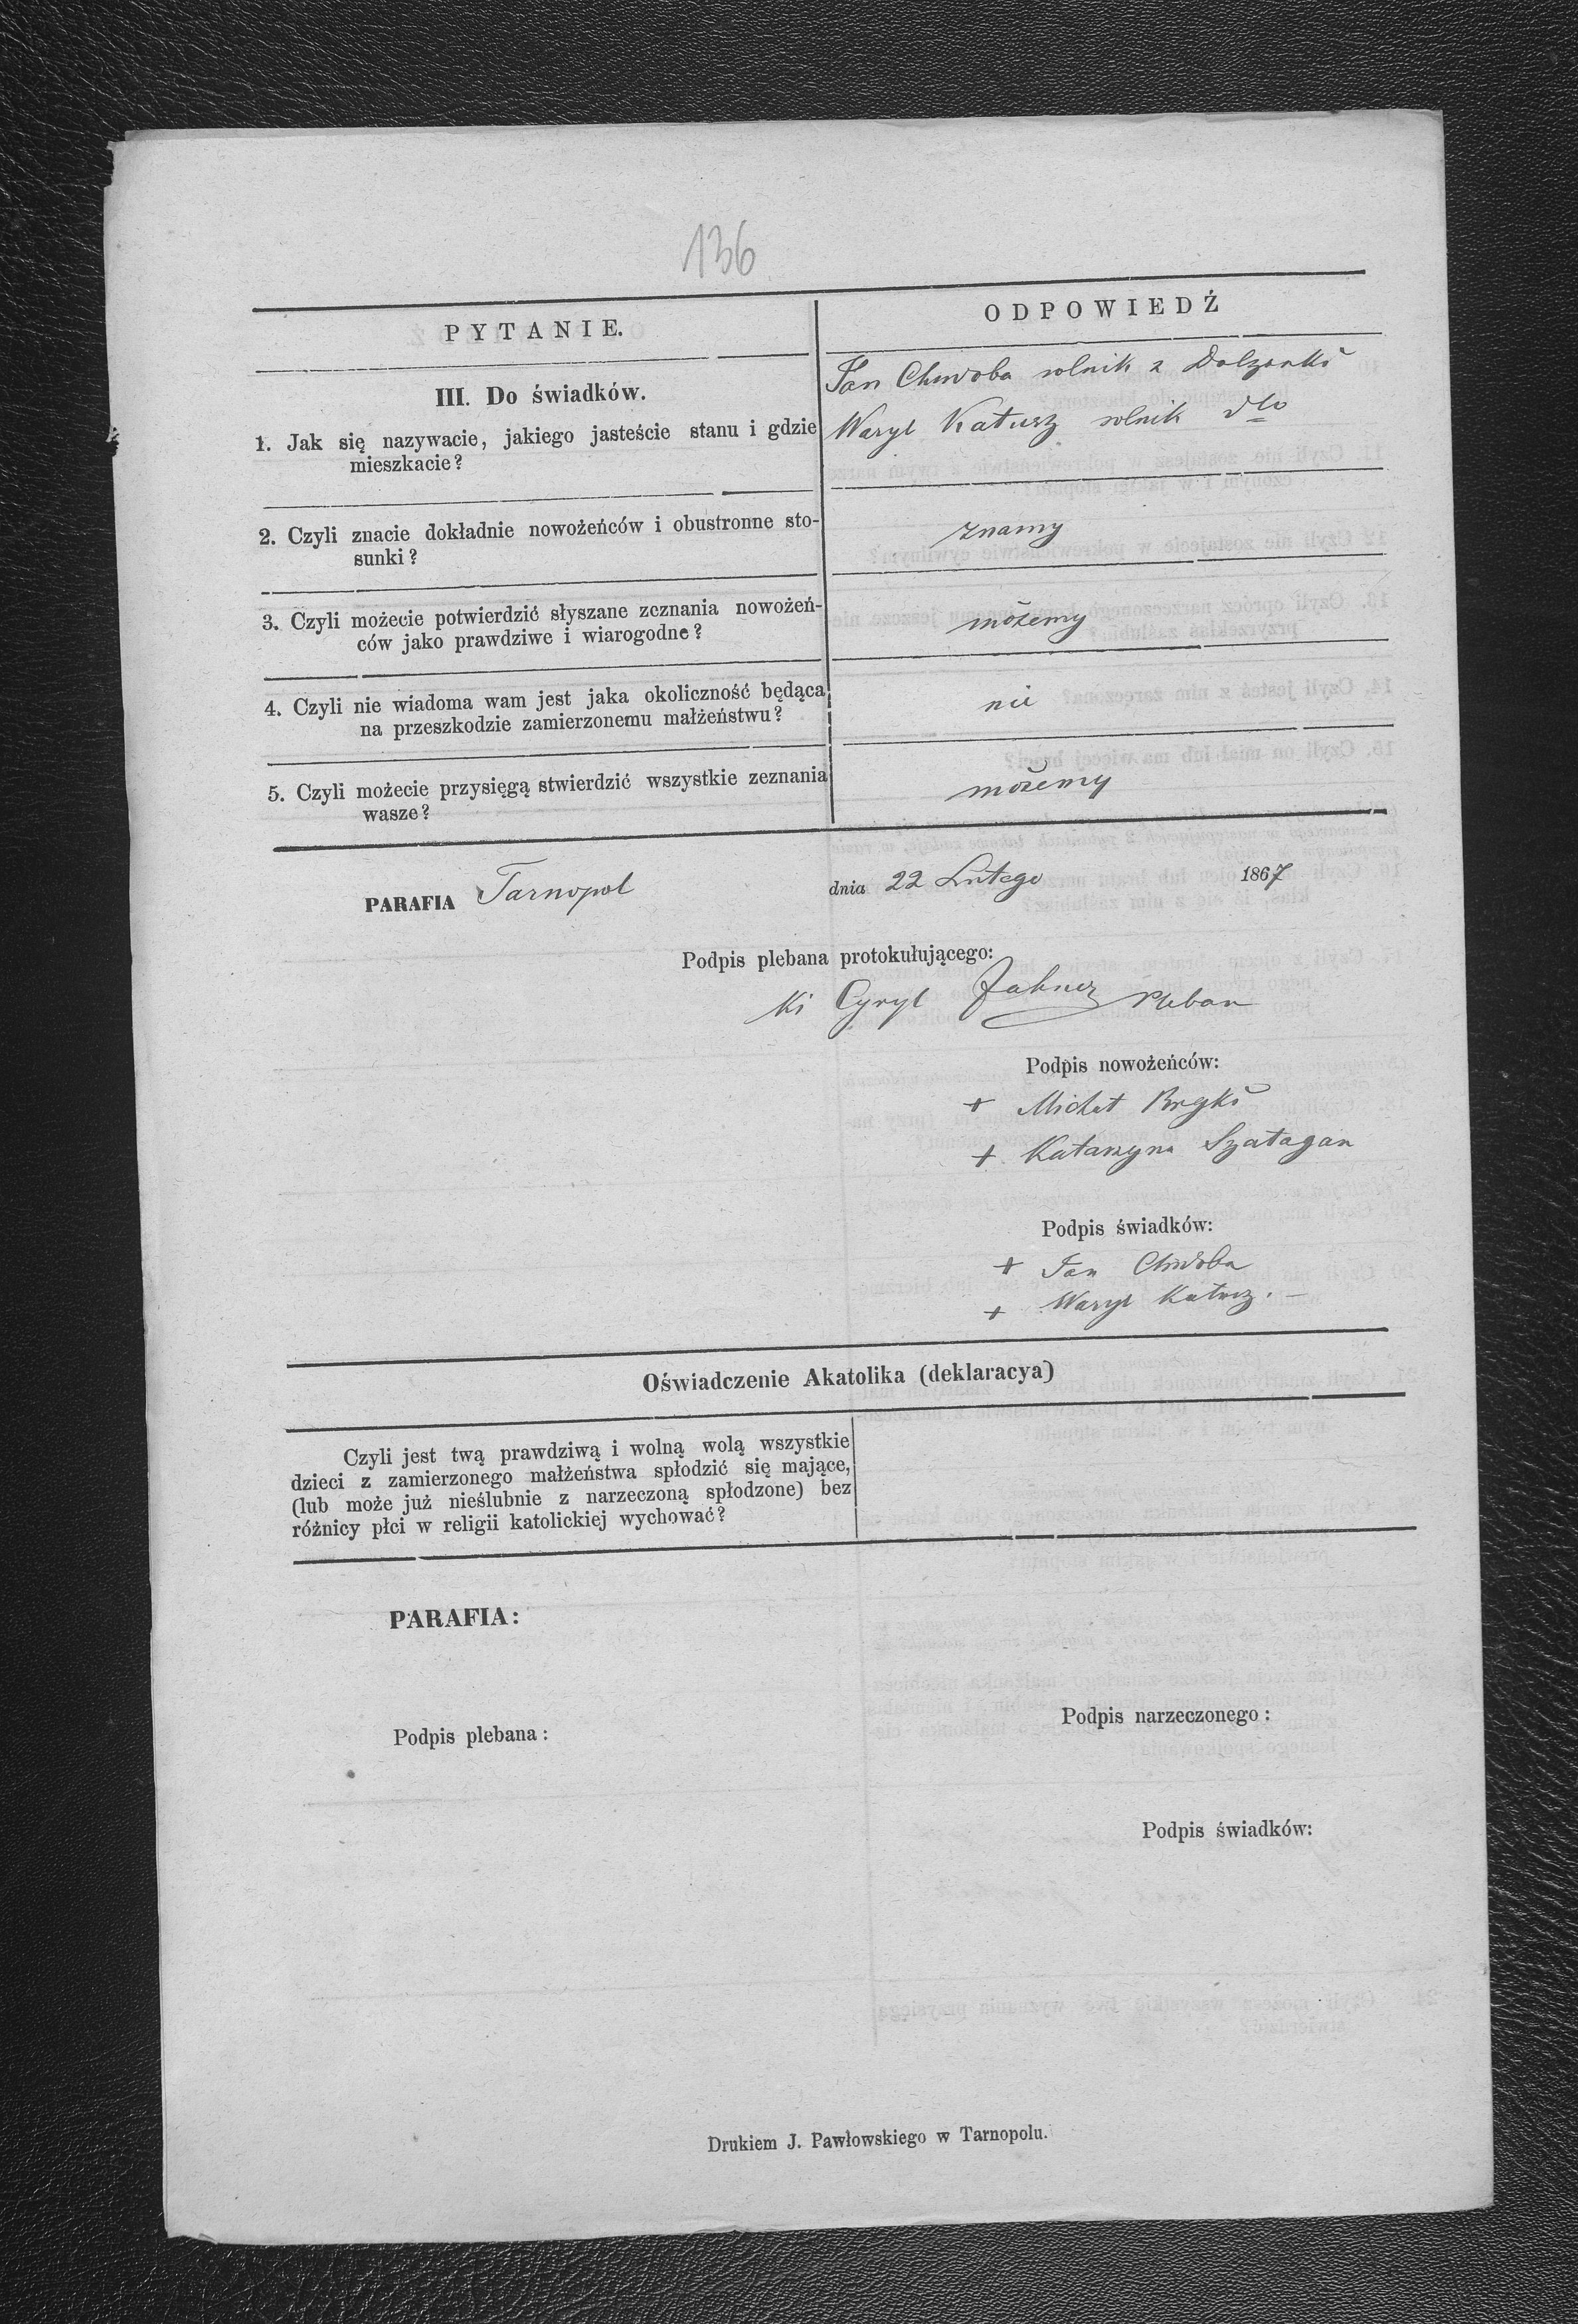 136
PYTANIE.
ODPOWIEDŹ
III. Do świadków.
1. Jak się nazywacie, jakiego jasteście stanu i gdzie
mieszkacie?
Jan Chwoba rolnik z Dolzanki
Wasyl Katusz rolnik dto
2. Czyli znacie dokładnie nowożeńców i obustronne sto-
sunki?
znamy
3. Czyli możecie potwierdzić słyszane zeznania nowożeń-
ców jako prawdziwe i wiarogodne?
możemy
4. Czyli nie wiadoma wam jest jaka okoliczność będąca
na przeszkodzie zamierzonemu małżeństwu?
nie
5. Czyli możecie przysięgą stwierdzić wszystkie zeznania
wasze?
możemy
PARAFIA Tarnopol dnia 22 Lutego 1867
Podpis plebana protokułującego:
Cyryl Pleban
Podpis nowożeńców:
+ Michał
+ Katarzyna Szatagan
Podpis świadków:
+ Jan Chwoba
+ Wasyl Katusz. –
Oświadczenie Akatolika (deklaracya)
Czyli jest twą prawdziwą i wolną wolą wszystkie
dzieci z zamierzonego małżeństwa spłodzić się mające,
(lub może już nieślubnie z narzeczoną spłodzone) bez
różnicy płci w religii katolickiej wychować?
PARAFIA:
Podpis plebana:
Podpis narzeczonego:
Podpis świadków:
Drukiem J. Pawłowskiego w Tarnopolu.